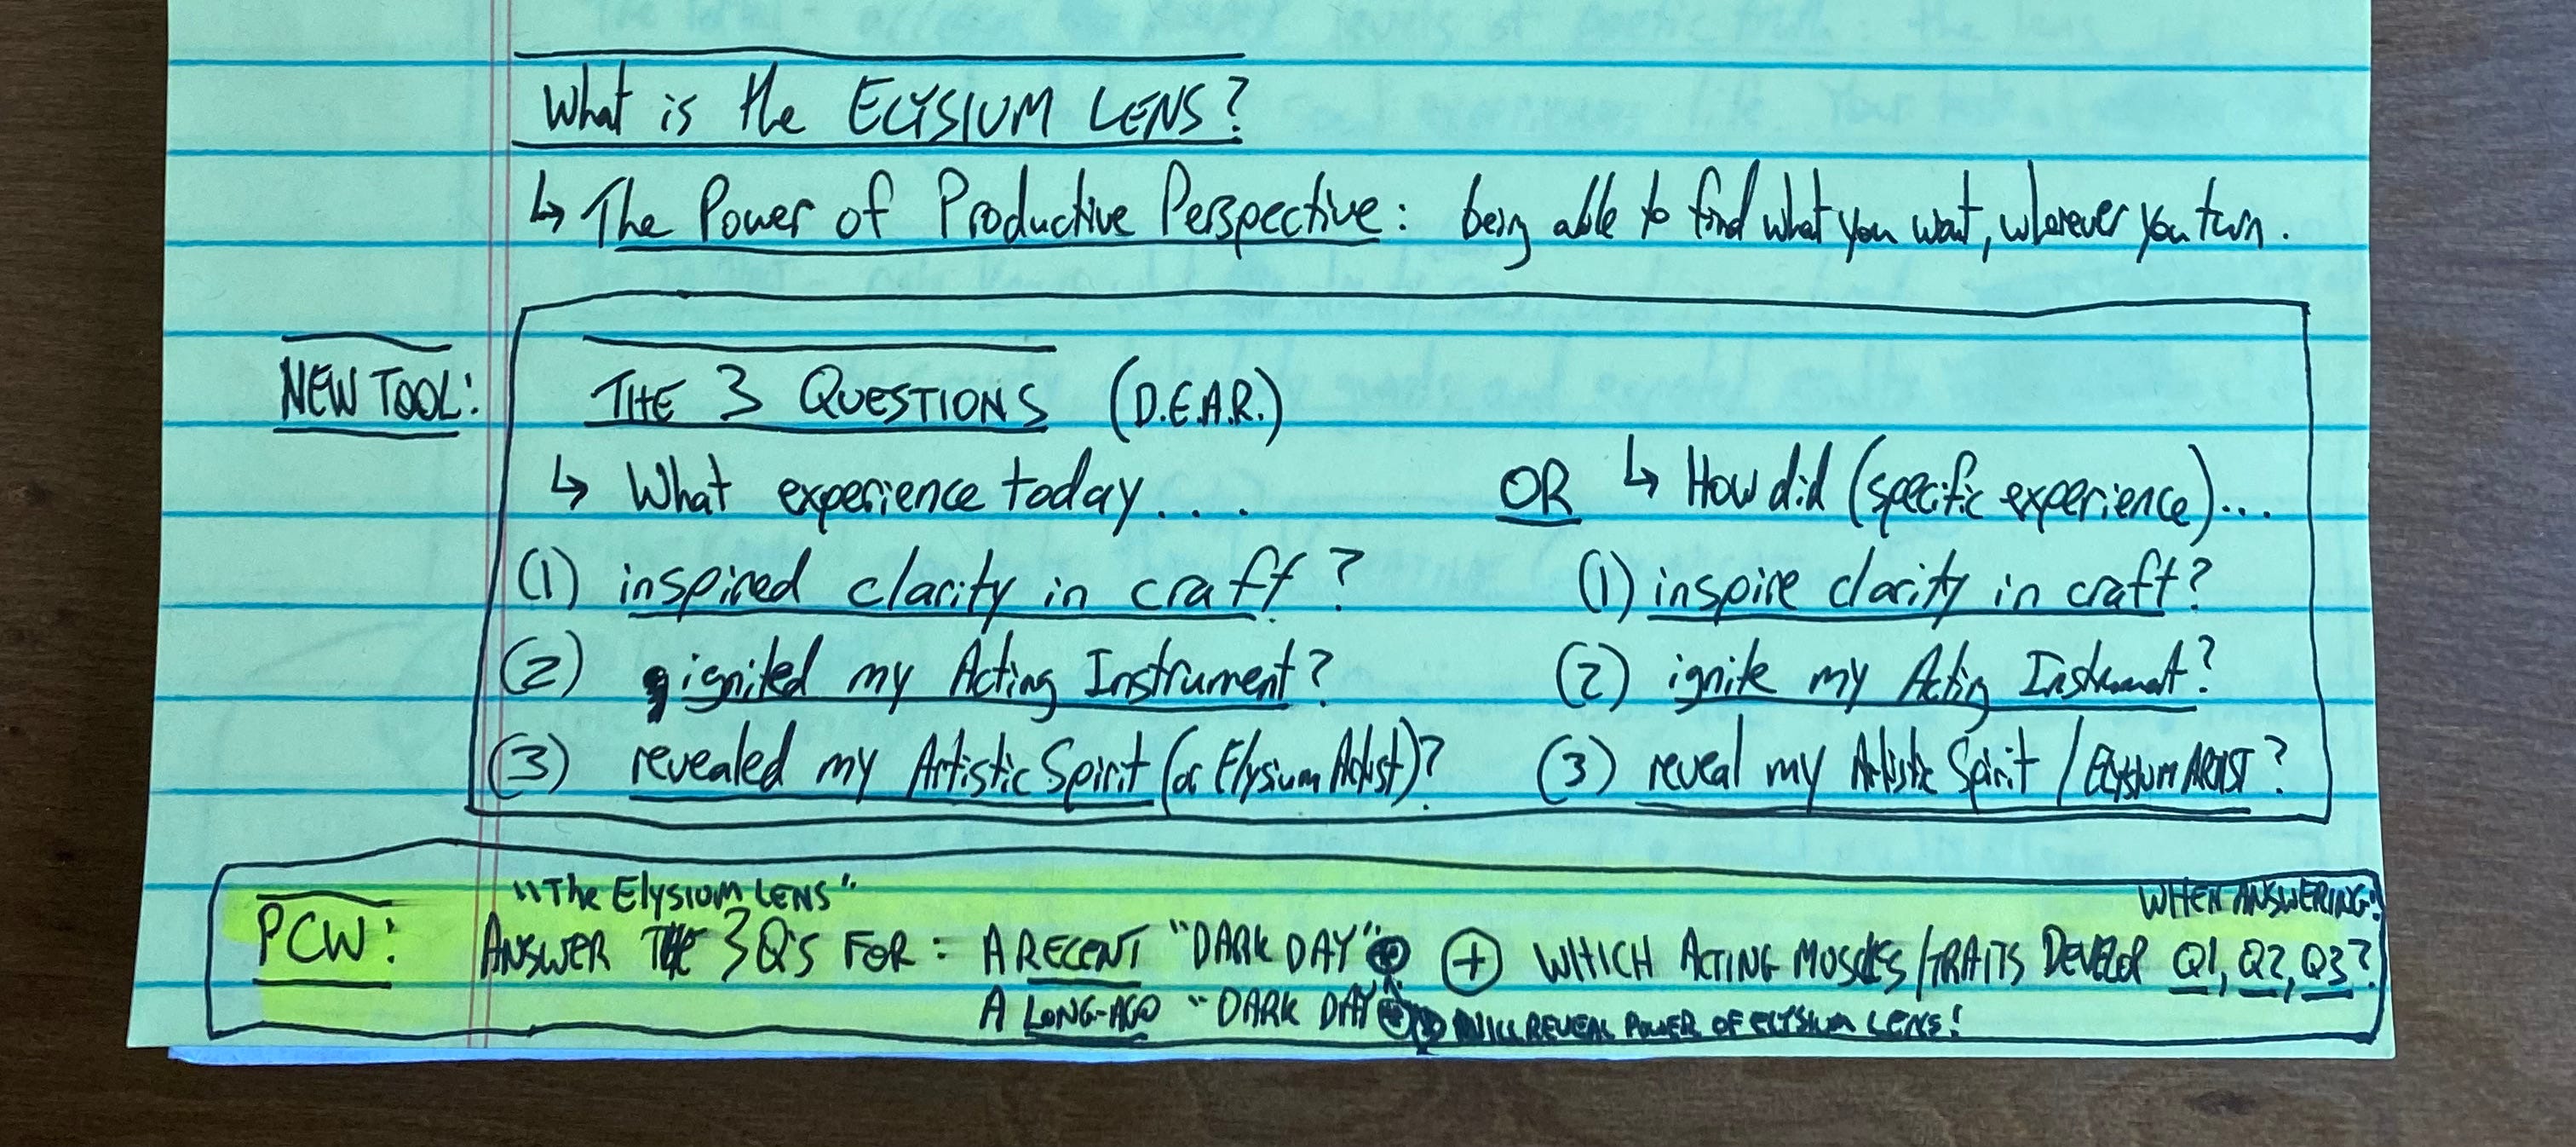 What is the ELYSIUM LENS?
↳ The Power of Productive Perspective: being able to find what you want, wherever you turn.
NEW TOOL:
THE 3 QUESTIONS (D.E.A.R.)
↳ What experience today... OR ↳ How did (specific experience)...
(1) inspired clarity in craft? (1) inspire clarity in craft?
(2) ignited my Acting Instrument? (2) ignite my Acting Instrument?
(3) revealed my Artistic Spirit (or Elysium Artist)? (3) reveal my Artistic Spirit / ELYSIUM ARTIST?
"The Elysium LENS" WHEN ANSWERING:
PCW: ANSWER THE 3 Q'S FOR: A RECENT "DARK DAY" + WHICH ACTING MUSCLES/TRAITS DEVELOP Q1, Q2, Q3?
A LONG-AGO "DARK DAY" WILL REVEAL POWER OF ELYSIUM LENS!